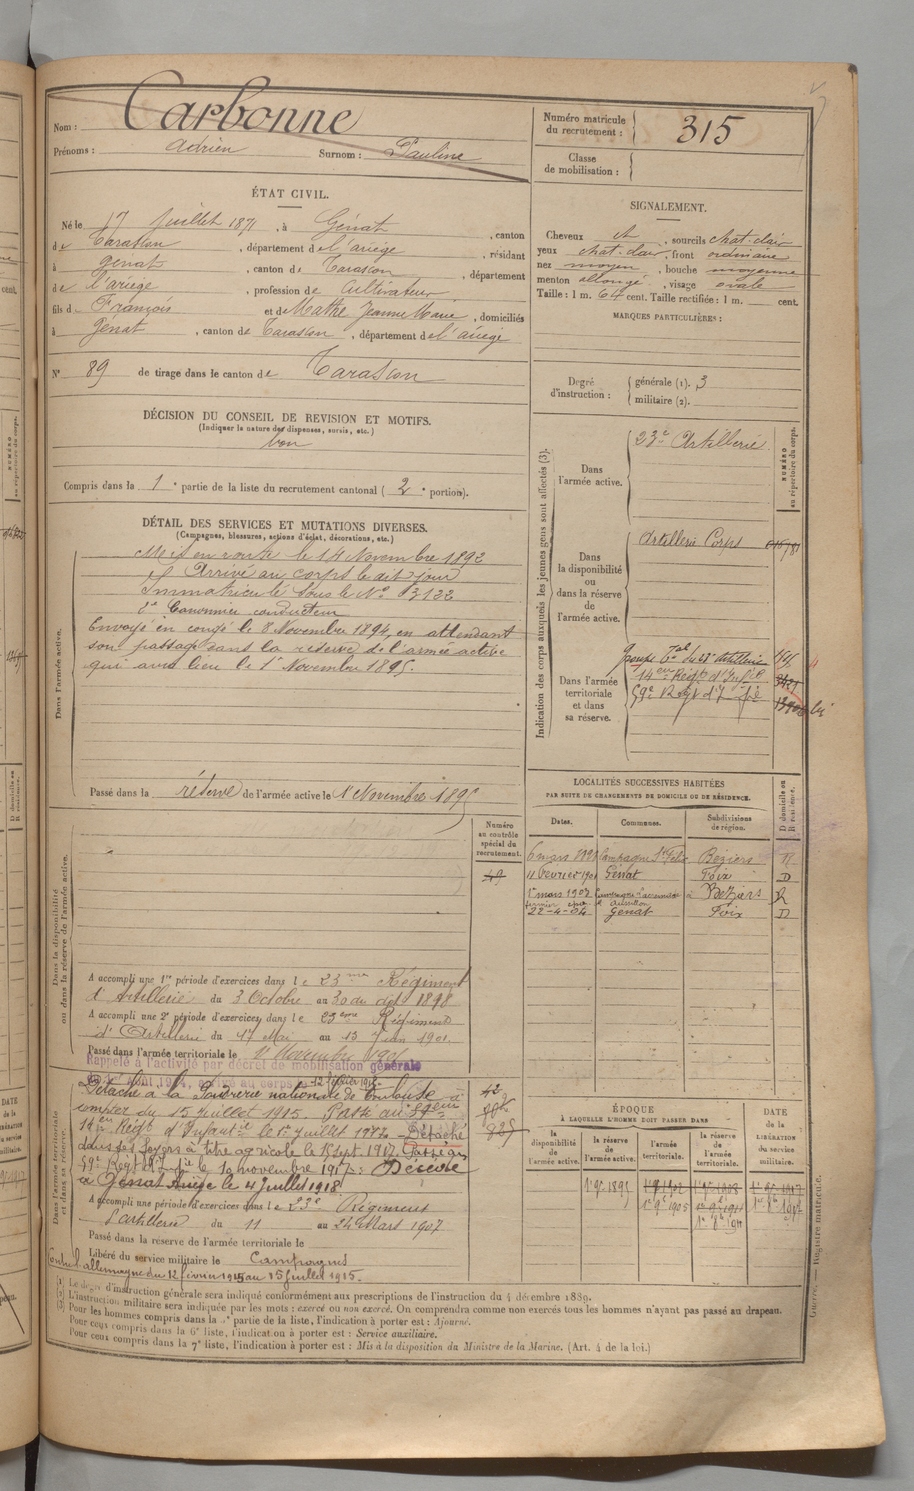 Nom : Carbonne
Prénoms : Adrien Surnom : Pauline
ÉTAT CIVIL.
Né le 17 Juillet 1871, à Génat, canton
de Tarascon, département de l'ariège, résidant
à Genat, canton de Tarascon, département
de l'ariège, profession de Cultivateur
fils de François et de Mathe Jeanne Marie, domiciliés
à Génat, canton de Tarascon, département de l'ariège
N° 89 de tirage dans le canton de Tarascon
DÉCISION DU CONSEIL DE REVISION ET MOTIFS.
(Indiquer la nature des dispenses, sursis, etc.)
bon
Compris dans la 1e partie de la liste du recrutement cantonal (2e portion).
DÉTAIL DES SERVICES ET MUTATIONS DIVERSES.
(Campagnes, blessures, actions d'éclat, décorations, etc.)
Dans l'armée active.
Mis en route le 14 Novembre 1892
Arrivé au corps le dit jour
Immatriculé sous le N° 3122
2e Canonnier conducteur
Envoyé en congé le 8 Novembre 1894, en attendant
son passage dans la réserve de l'armée active
qui aura lieu le 1er Novembre 1895.
Passé dans la réserve de l'armée active le 1er Novembre 1895
Dans la disponibilité
ou dans la réserve de l'armée active.
Numéro
au contrôle
spécial du
recrutement.
49
A accompli une 1re période d'exercices dans le 23ème Régiment
d'Artillerie du 3 Octobre au 30 du dit 1898
A accompli une 2e période d'exercices dans le 23ème Régiment
d'Artillerie du 17 Mai au 13 Juin 1901.
Passé dans l'armée territoriale le 1er Novembre 1905
Rappelé à l'activité par décret de mobilisation générale
du 1er Août 1914, arrivé au corps le 12 février 1915.
Dans l'armée territoriale
et dans sa réserve.
Détaché à la Poudrerie nationale de Toulouse à
compter du 15 juillet 1915. Passé au
14ème Régt d'Infanterie le 1er juillet 1917 - Détaché
dans ses foyers à titre agricole le 15 sept. 1917. Passé au
59e Régt d'Infie le 10 novembre 1917. Décédé
à Génat Ariège le 4 Juillet 1918
A accompli une période d'exercices dans le 23e Régiment
d'artillerie du 11 au 24 Mars 1907
Passé dans la réserve de l'armée territoriale le
Libéré du service militaire le
Campagnes
Contre l'allemagne du 12 février 1915 au 15 juillet 1915.
(1) Le degré d'instruction générale sera indiqué conformément aux prescriptions de l'instruction du 4 décembre 1889.
(2) L'instruction militaire sera indiquée par les mots : exercé ou non exercé. On comprendra comme non exercés tous les hommes n'ayant pas passé au drapeau.
(3) Pour les hommes compris dans la 2e partie de la liste, l'indication à porter est : Ajourné.
Pour ceux compris dans la 6e liste, l'indication à porter est : Service auxiliaire.
Pour ceux compris dans la 7e liste, l'indication à porter est : Mis à la disposition du Ministre de la Marine. (Art. 4 de la loi.)
Numéro matricule
du recrutement : 315
Classe
de mobilisation :
SIGNALEMENT.
Cheveux et, sourcils chat-clair
yeux chat-clair, front ordinaire
nez moyen, bouche moyenne
menton allongé, visage ovale
Taille : 1 m. 64 cent. Taille rectifiée : 1 m. cent.
MARQUES PARTICULIÈRES :
Degré
d'instruction :
générale (1). 3
militaire (2).
Indication des corps auxquels les jeunes gens sont affectés (3).
NUMÉRO
au répertoire du corps.
Dans
l'armée active.
23e Artillerie.
Dans
la disponibilité
ou
dans la réserve
de
l'armée active.
Artillerie Corps
Dans l'armée
territoriale
et dans
sa réserve.
Groupe Tal du 23e Artillerie
14ème Régt d'Infie
59e Régt d'Infie
LOCALITÉS SUCCESSIVES HABITÉES
PAR SUITE DE CHANGEMENTS DE DOMICILE OU DE RÉSIDENCE.
Dates. Communes. Subdivisions
de région.
D domicile ou
R résidence.
6 mars Campagne St Felix Béziers R
11 Février 1901 Génat Foix D
1er mars 1902 Béziers R
22-4-04 Génat Foix D
ÉPOQUE
À LAQUELLE L'HOMME DOIT PASSER DANS
DATE
de la
LIBÉRATION
du service
militaire.
la
disponibilité
de l'armée active.
la réserve
de
l'armée active.
l'armée
territoriale.
la réserve
de
l'armée
territoriale.
1er 9bre 1895 1er 9bre 1902 1er 9bre 1908 1er 9bre 1917
1er 9bre 1905 1er 9bre 1911
Registre matricule.